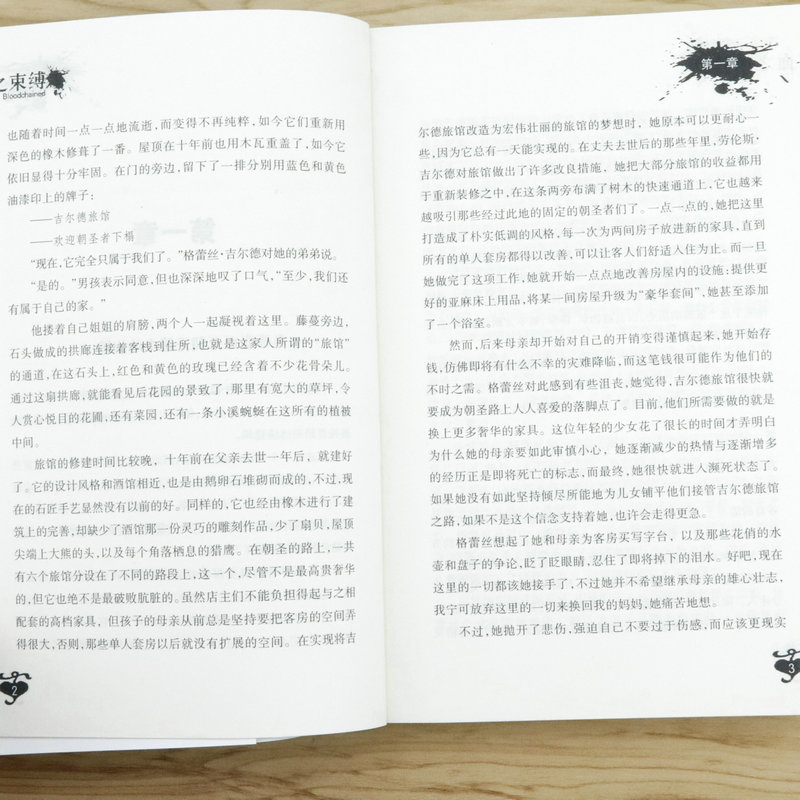 之束缚
Bloodchained
也随着时间一点一点地流逝,而变得不再纯粹,如今它们重新用
深色的橡木修葺了一番。屋顶在十年前也用木瓦重盖了,如今它
依旧显得十分牢固。在门的旁边,留下了一排分别用蓝色和黄色
油漆印上的牌子:
——吉尔德旅馆
——欢迎朝圣者下榻
“现在,它完全只属于我们了。”格蕾丝·吉尔德对她的弟弟说。
“是的。”男孩表示同意,但也深深地叹了口气,“至少,我们还
有属于自己的家。”
他搂着自己姐姐的肩膀,两个人一起凝视着这里。藤蔓旁边,
石头做成的拱廊连接着客栈到住所,也就是这家人所谓的“旅馆”
的通道,在这石头上,红色和黄色的玫瑰已经含着不少花骨朵儿。
通过这扇拱廊,就能看见后花园的景致了,那里有宽大的草坪,令
人赏心悦目的花圃,还有菜园,还有一条小溪蜿蜒在这所有的植被
中间。
旅馆的修建时间比较晚,十年前在父亲去世一年后,就建好
了。它的设计风格和酒馆相近,也是由鹅卵石堆砌而成的,不过,现
在的石匠手艺显然没有以前的好。同样的,它也经由橡木进行了建
筑上的完善,却缺少了酒馆那一份灵巧的雕刻作品,少了扇贝,屋顶
尖端上大熊的头,以及每个角落栖息的猎鹰。在朝圣的路上,一共
有六个旅馆分设在了不同的路段上,这一个,尽管不是最高贵奢华
的,但它也绝不是最破败肮脏的。虽然店主们不能负担得起与之相
配套的高档家具,但孩子的母亲从前总是坚持要把客房的空间弄
得很大,否则,那些单人套房以后就没有扩展的空间。在实现将吉
2
第一章
尔德旅馆改造为宏伟壮丽的旅馆的梦想时,她原本可以更耐心一
些,因为它总有一天能实现的。在丈夫去世后的那些年里,劳伦斯·
吉尔德对旅馆做出了许多改良措施,她把大部分旅馆的收益都用
于重新装修之中,在这条两旁布满了树木的快速通道上,它也越来
越吸引那些经过此地的固定的朝圣者们了。一点一点的,她把这里
打造成了朴实低调的风格,每一次为两间房子放进新的家具,直到
所有的单人套房都得以改善,可以让客人们舒适入住为止。而一旦
她做完了这项工作,她就开始一点点地改善房屋内的设施:提供更
好的亚麻床上用品,将某一间房屋升级为“豪华套间”,她甚至添加
了一个浴室。
然而,后来母亲却开始对自己的开销变得谨慎起来,她开始存
钱,仿佛即将有什么不幸的灾难降临,而这笔钱很可能作为他们的
不时之需。格蕾丝对此感到有些沮丧,她觉得,吉尔德旅馆很快就
要成为朝圣路上人人喜爱的落脚点了。目前,他们所需要做的就是
换上更多奢华的家具。这位年轻的少女花了很长的时间才弄明白
为什么她的母亲要如此审慎小心,她逐渐减少的热情与逐渐增多
的经历正是即将死亡的标志,而最终,她很快就进入濒死状态了。
如果她没有如此坚持倾尽所能地为儿女铺平他们接管吉尔德旅馆
之路,如果不是这个信念支持着她,也许会走得更急。
格蕾丝想起了她和母亲为客房买写字台,以及那些花俏的水
壶和盘子的争论,眨了眨眼睛,忍住了即将掉下的泪水。好吧,现在
这里的一切都该她接手了,不过她并不希望继承母亲的雄心壮志,
我宁可放弃这里的一切来换回我的妈妈,她痛苦地想。
不过,她抛开了悲伤,强迫自己不要过于伤感,而应该更现实
3